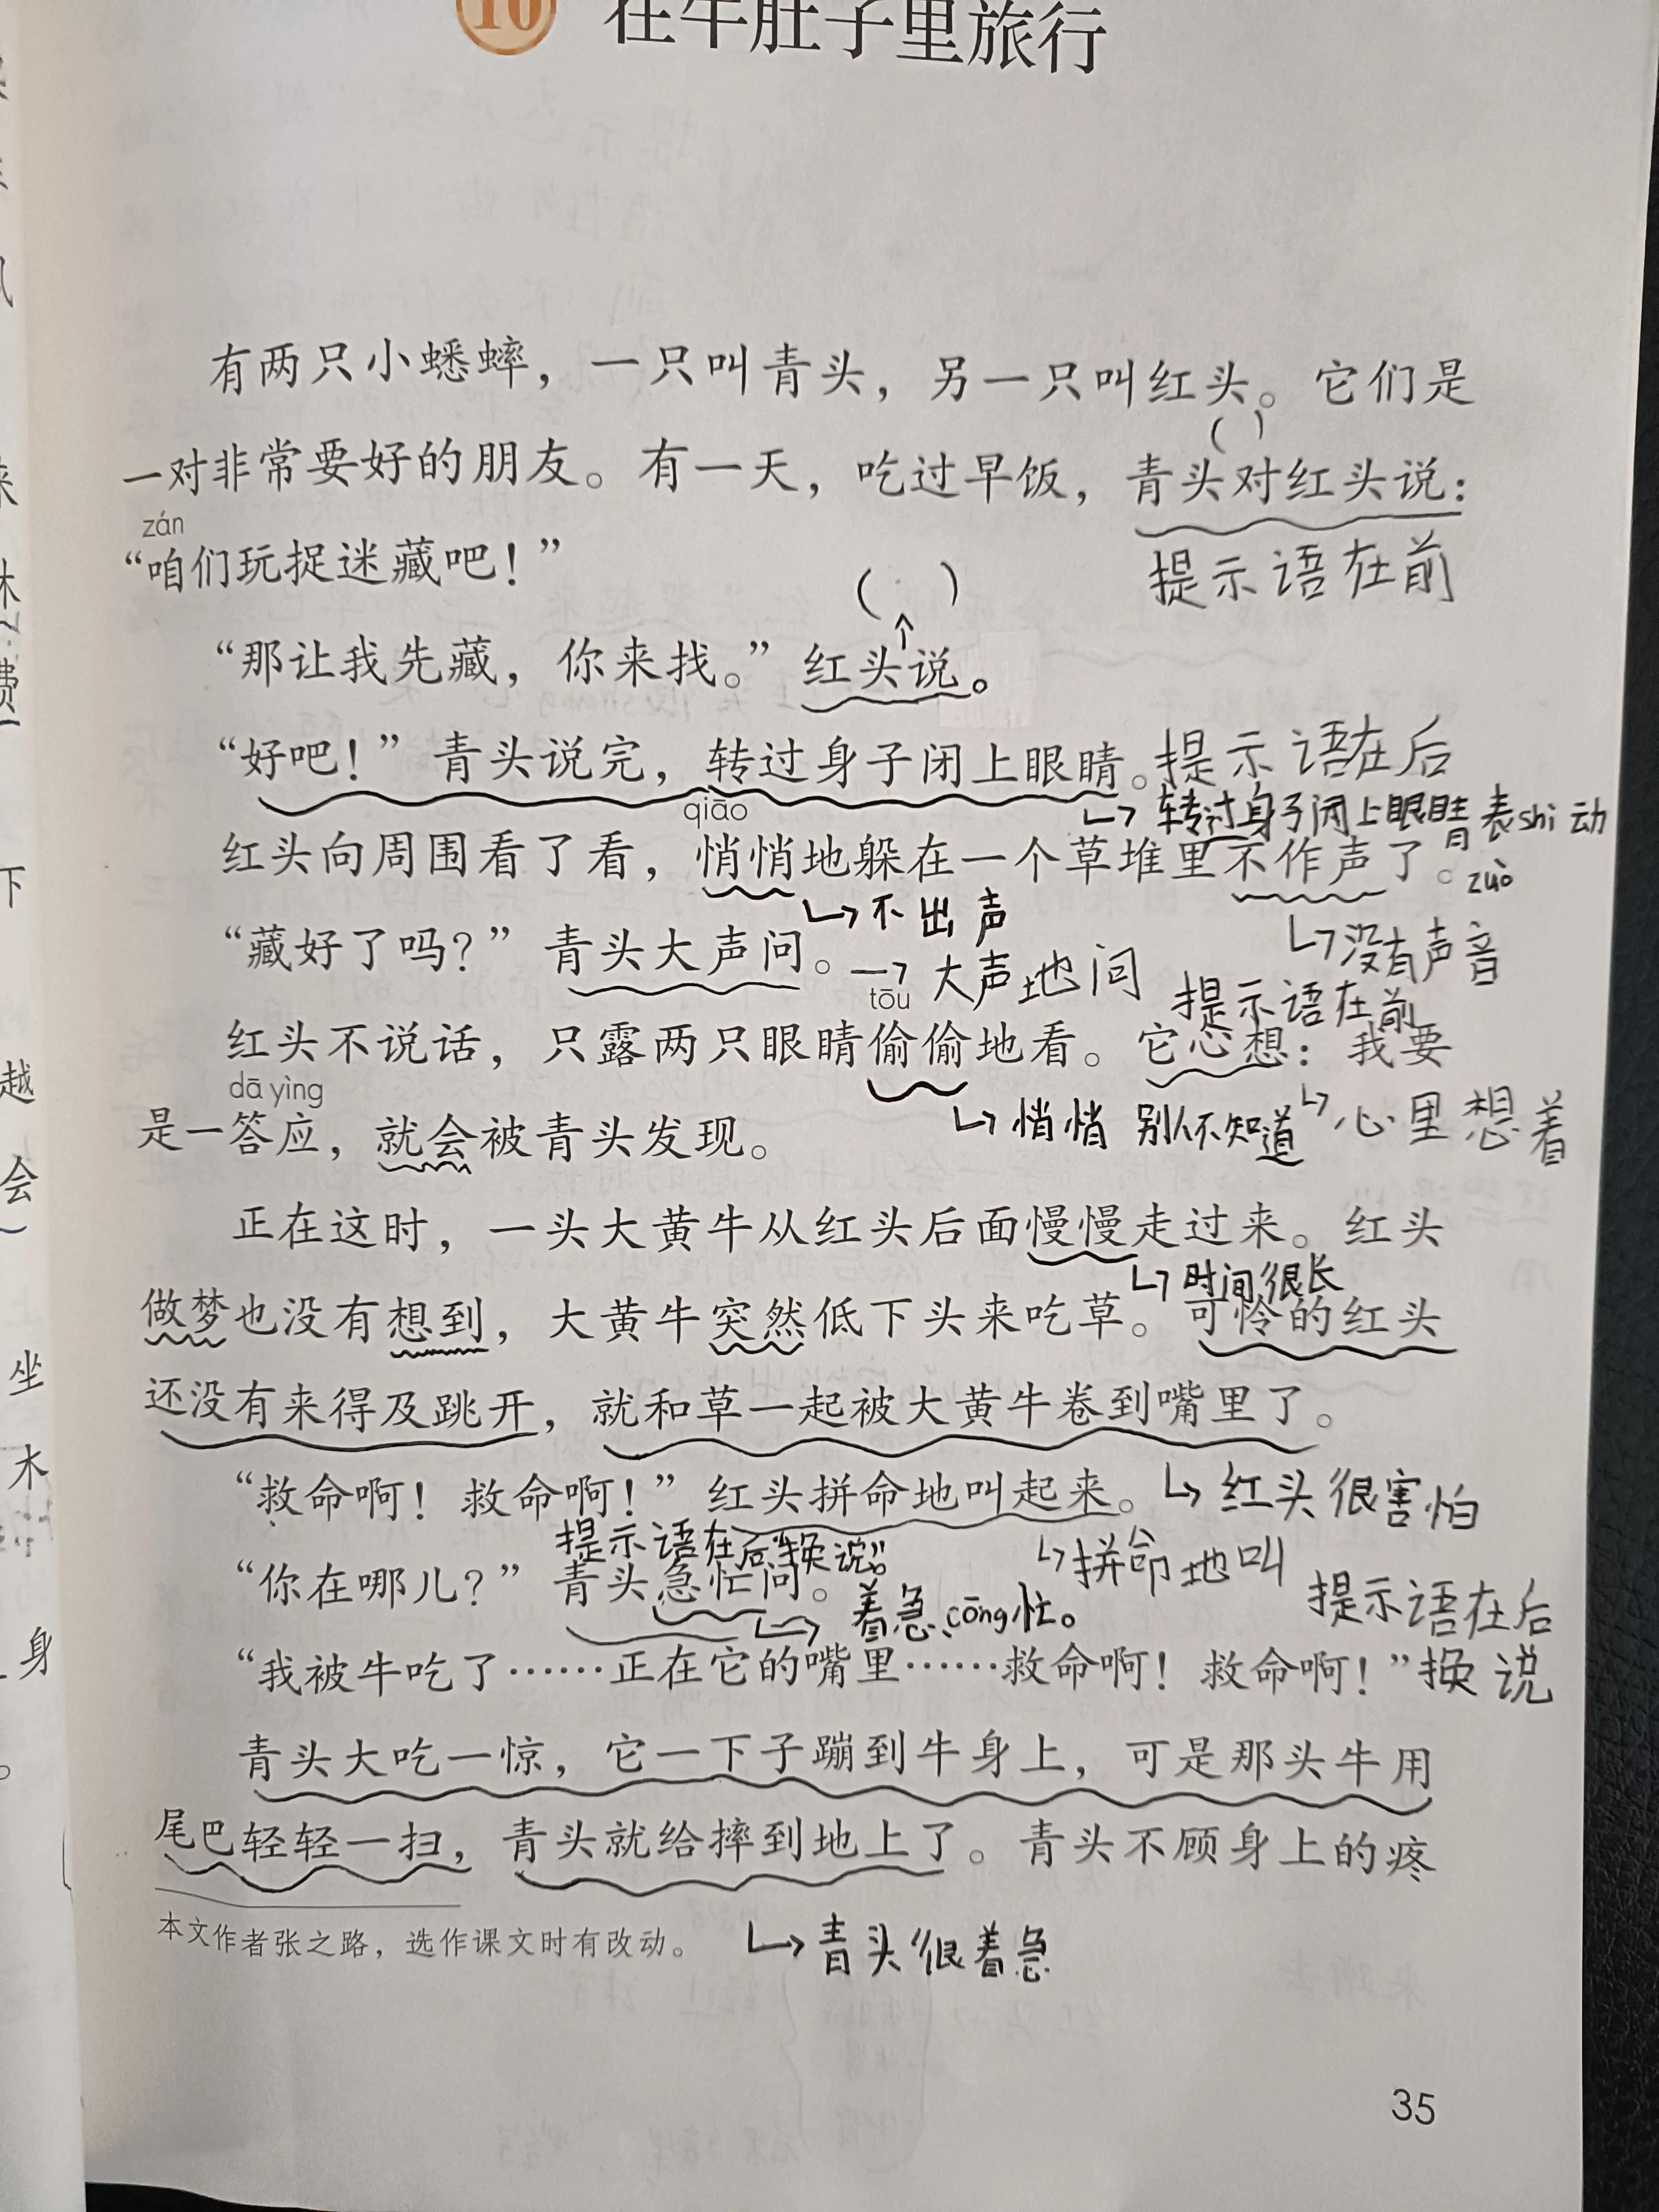 10 在牛肚子里旅行
有两只小蟋蟀，一只叫青头，另一只叫红头。它们是
( )
一对非常要好的朋友。有一天，吃过早饭，青头对红头说：
zán
“咱们玩捉迷藏吧！”
提示语在前
( )
“那让我先藏，你来找。”红头说。
“好吧！”青头说完，转过身子闭上眼睛。提示语在后
qiāo
转过身子闭上眼睛表shi动
zuò
红头向周围看了看，悄悄地躲在一个草堆里不作声了。
不出声
没有声音
“藏好了吗？”青头大声问。
大声地问
提示语在前
tōu
红头不说话，只露两只眼睛偷偷地看。它心想：我要
dā yìng
悄悄 别人不知道
心里想着
是一答应，就会被青头发现。
正在这时，一头大黄牛从红头后面慢慢走过来。红头
时间很长
做梦也没有想到，大黄牛突然低下头来吃草。可怜的红头
还没有来得及跳开，就和草一起被大黄牛卷到嘴里了。
“救命啊！救命啊！”红头拼命地叫起来。
红头很害怕
提示语在后“换说”。
拼命地叫
提示语在后
“你在哪儿？”青头急忙问。
着急、cōng忙。
“我被牛吃了……正在它的嘴里……救命啊！救命啊！”换说
青头大吃一惊，它一下子蹦到牛身上，可是那头牛用
尾巴轻轻一扫，青头就给摔到地上了。青头不顾身上的疼
本文作者张之路，选作课文时有改动。
青头很着急
35